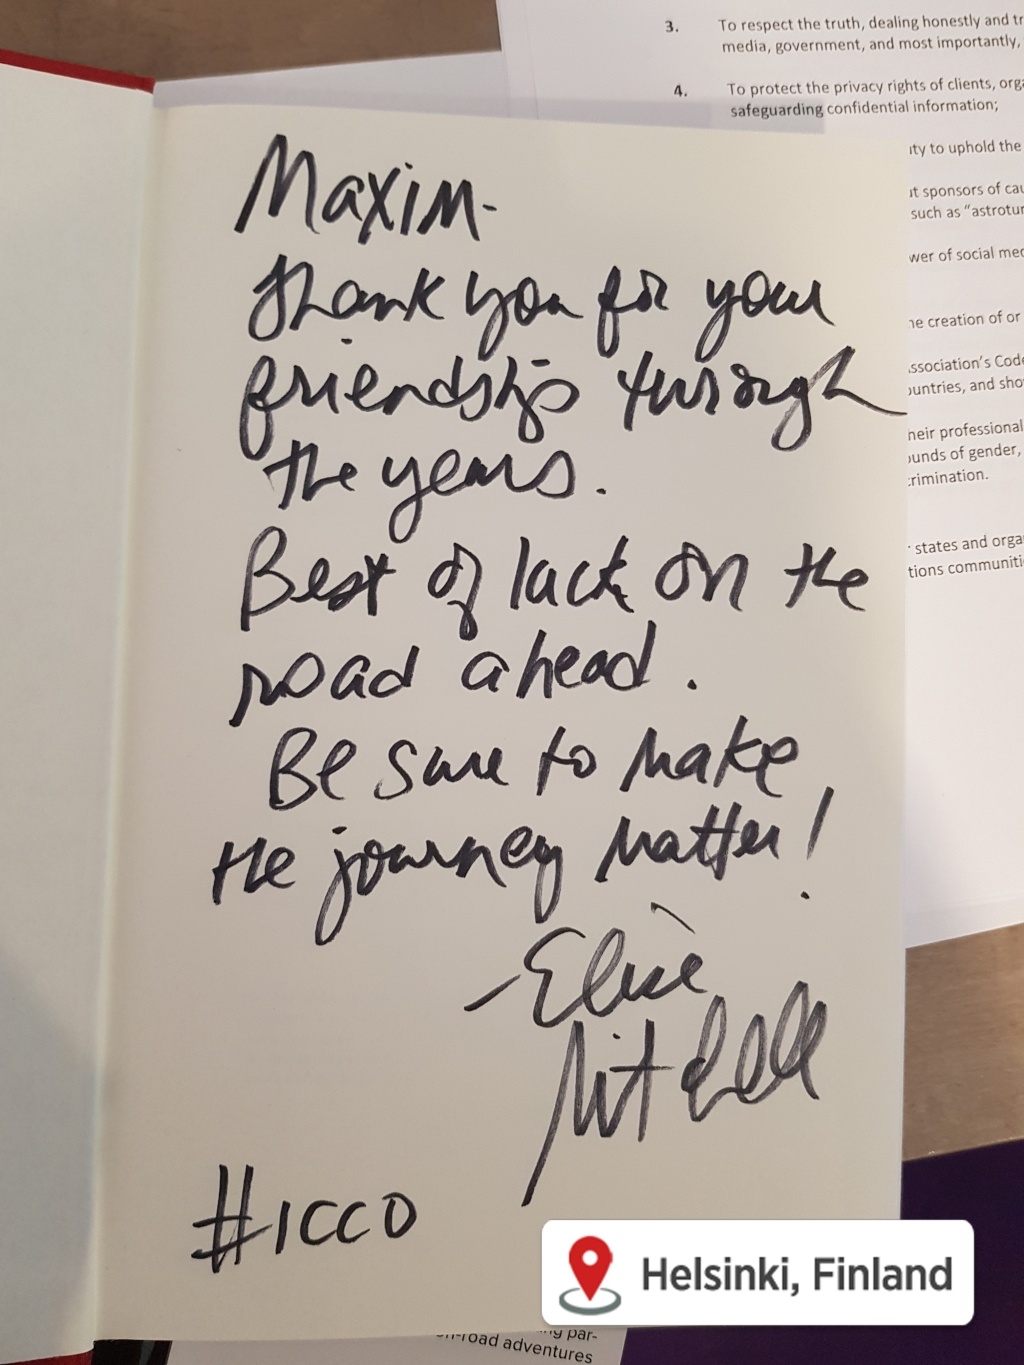 3. To respect the truth, dealing honestly and tr
media, government, and most importantly,
4. To protect the privacy rights of clients, orga
safeguarding confidential information;
ty to uphold the
t sponsors of cau
such as "astrotur
wer of social med
he creation of or
ssociation's Code
ountries, and sho
heir professional
ounds of gender,
crimination.
states and orga
tions communiti
Maxim-
Thank you for your
friendship through
the years.
Best of luck on the
road ahead.
Be sure to make
the journey matter!
-Elise
Mitchell
#ICCO
Helsinki, Finland
ng par-
n-road adventures